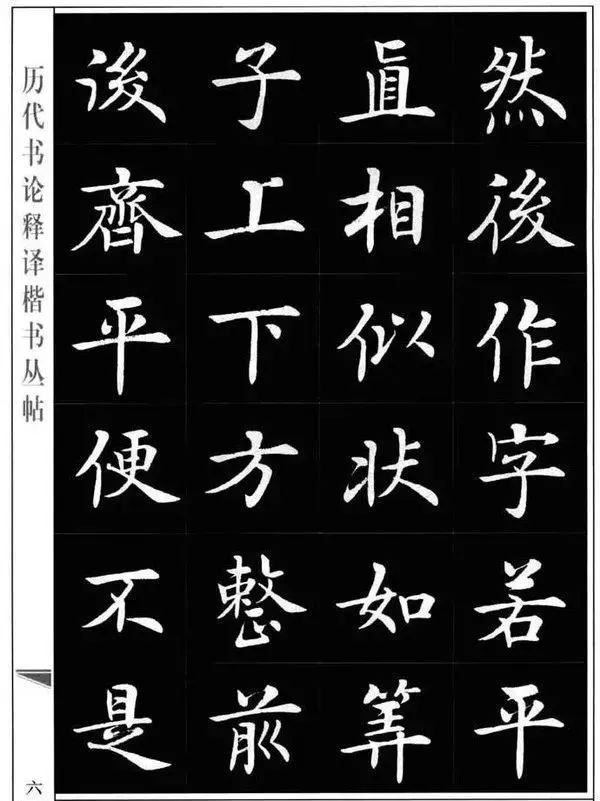 然後作字若平
直相似狀如筭
子上下方整前
後齊平便不是
历代书论释译楷书丛帖
六